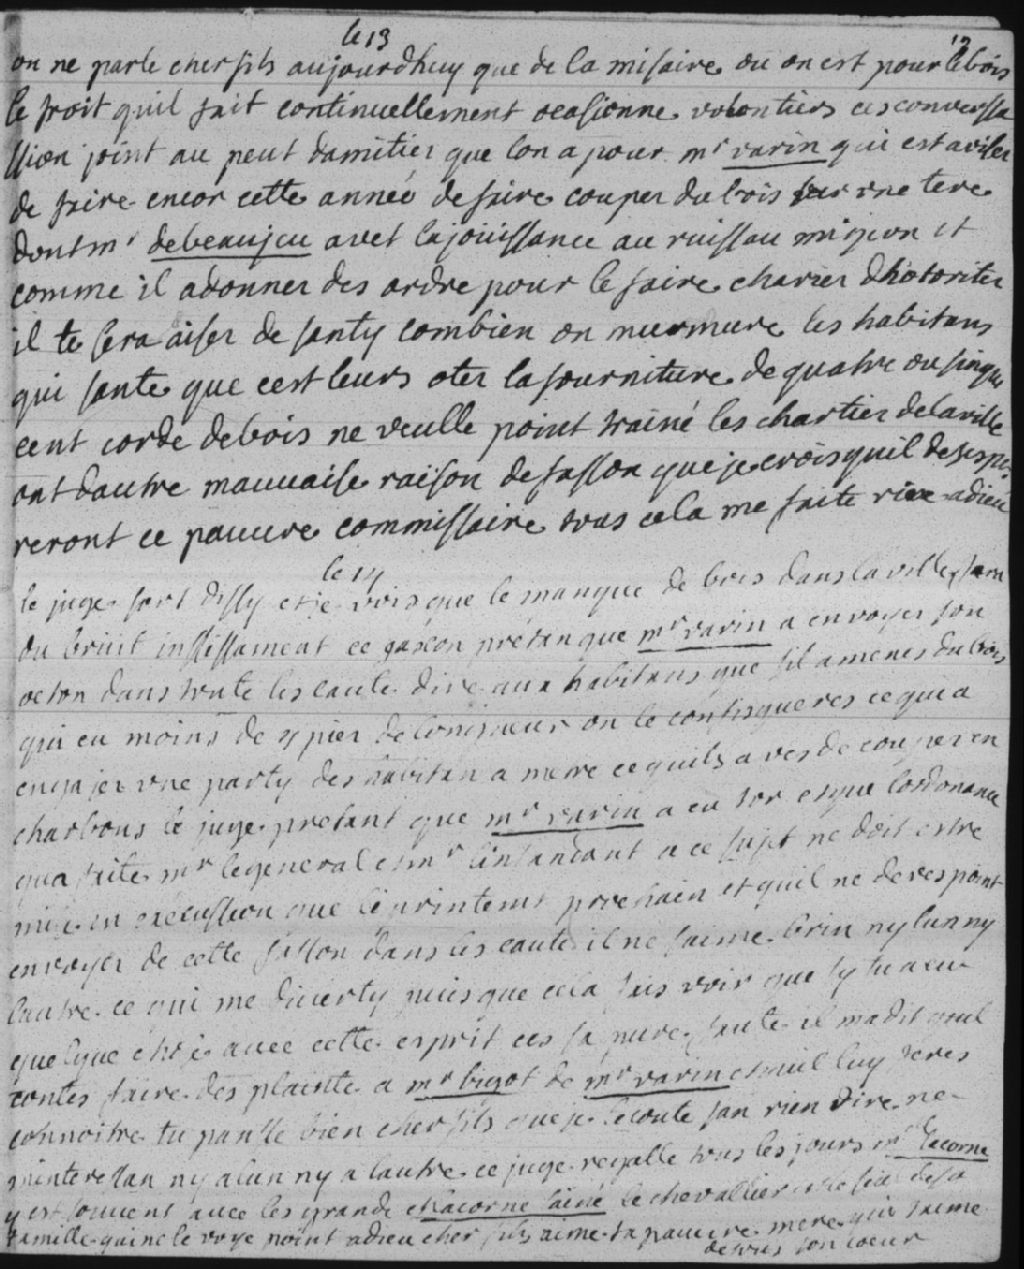 le 13
on ne parle cher fils aujourdhuy que de la misaire ou on est pour le bois
le froit quil fait continuellement ocasionne volontiers ces converssa
ssion joint au peut damitier que lon a pour mr varin qui est aviser
de faire encor cette année de faire couper du bois sur une tere
dont mr debeaujeu avet la jouissance au ruissau migeon et
comme il a donner des ordre pour le faire charier dhotoriter
il te sera aiser de santy combien on murmure les habitans
qui sante que cest leurs oter la fourniture de quatre ou sinque
cent corde de bois ne veulle point trainé les chartier de la ville
ont dautre mauvaise raison de fasson que je crois quil desespe
reront ce pauvre commissaire tous cela me faite rire adieu
le 14
le juge sort dissy et je vois que le manque de bois dans la ville fera
du bruit ce gascon prétan que mr varin a envoyer son
dans toute les caute dire aux habitans que sil amenes du bois
qui eu moins de 4 pier de on le confisqueres ce qui a
engajer une party des habitan a mere ce quils aves de couper en
charbons le juge pretant que mr varin a eu tor esque lordonance
qua faite mr le general et mr lintandant a ce sujet ne doit estre
mise en exécussion que le printems prochain et quil ne deves point
envoyer de cette fasson dans les caute il ne saime brin ny lun ny
lautre ce qui me diverty puis que cela fais voir que sy tu a eu
quelque chose avec cette esprit ces sa pure faute il ma dit quil
contes faire des plainte a mr bigot de mr varin et quil luy feres
connoitre tu panse bien cher fils que je lecoute san rien dire ne
minteressan ny a lun ny a lautre ce juge regalle tous les jours mr lacorne
y est souvent avec les grande et lacorne lainé le chevallier de sa
famille qui ne le voye point adieu cher fils aime ta pauvre mere qui taime
de tous son coeur